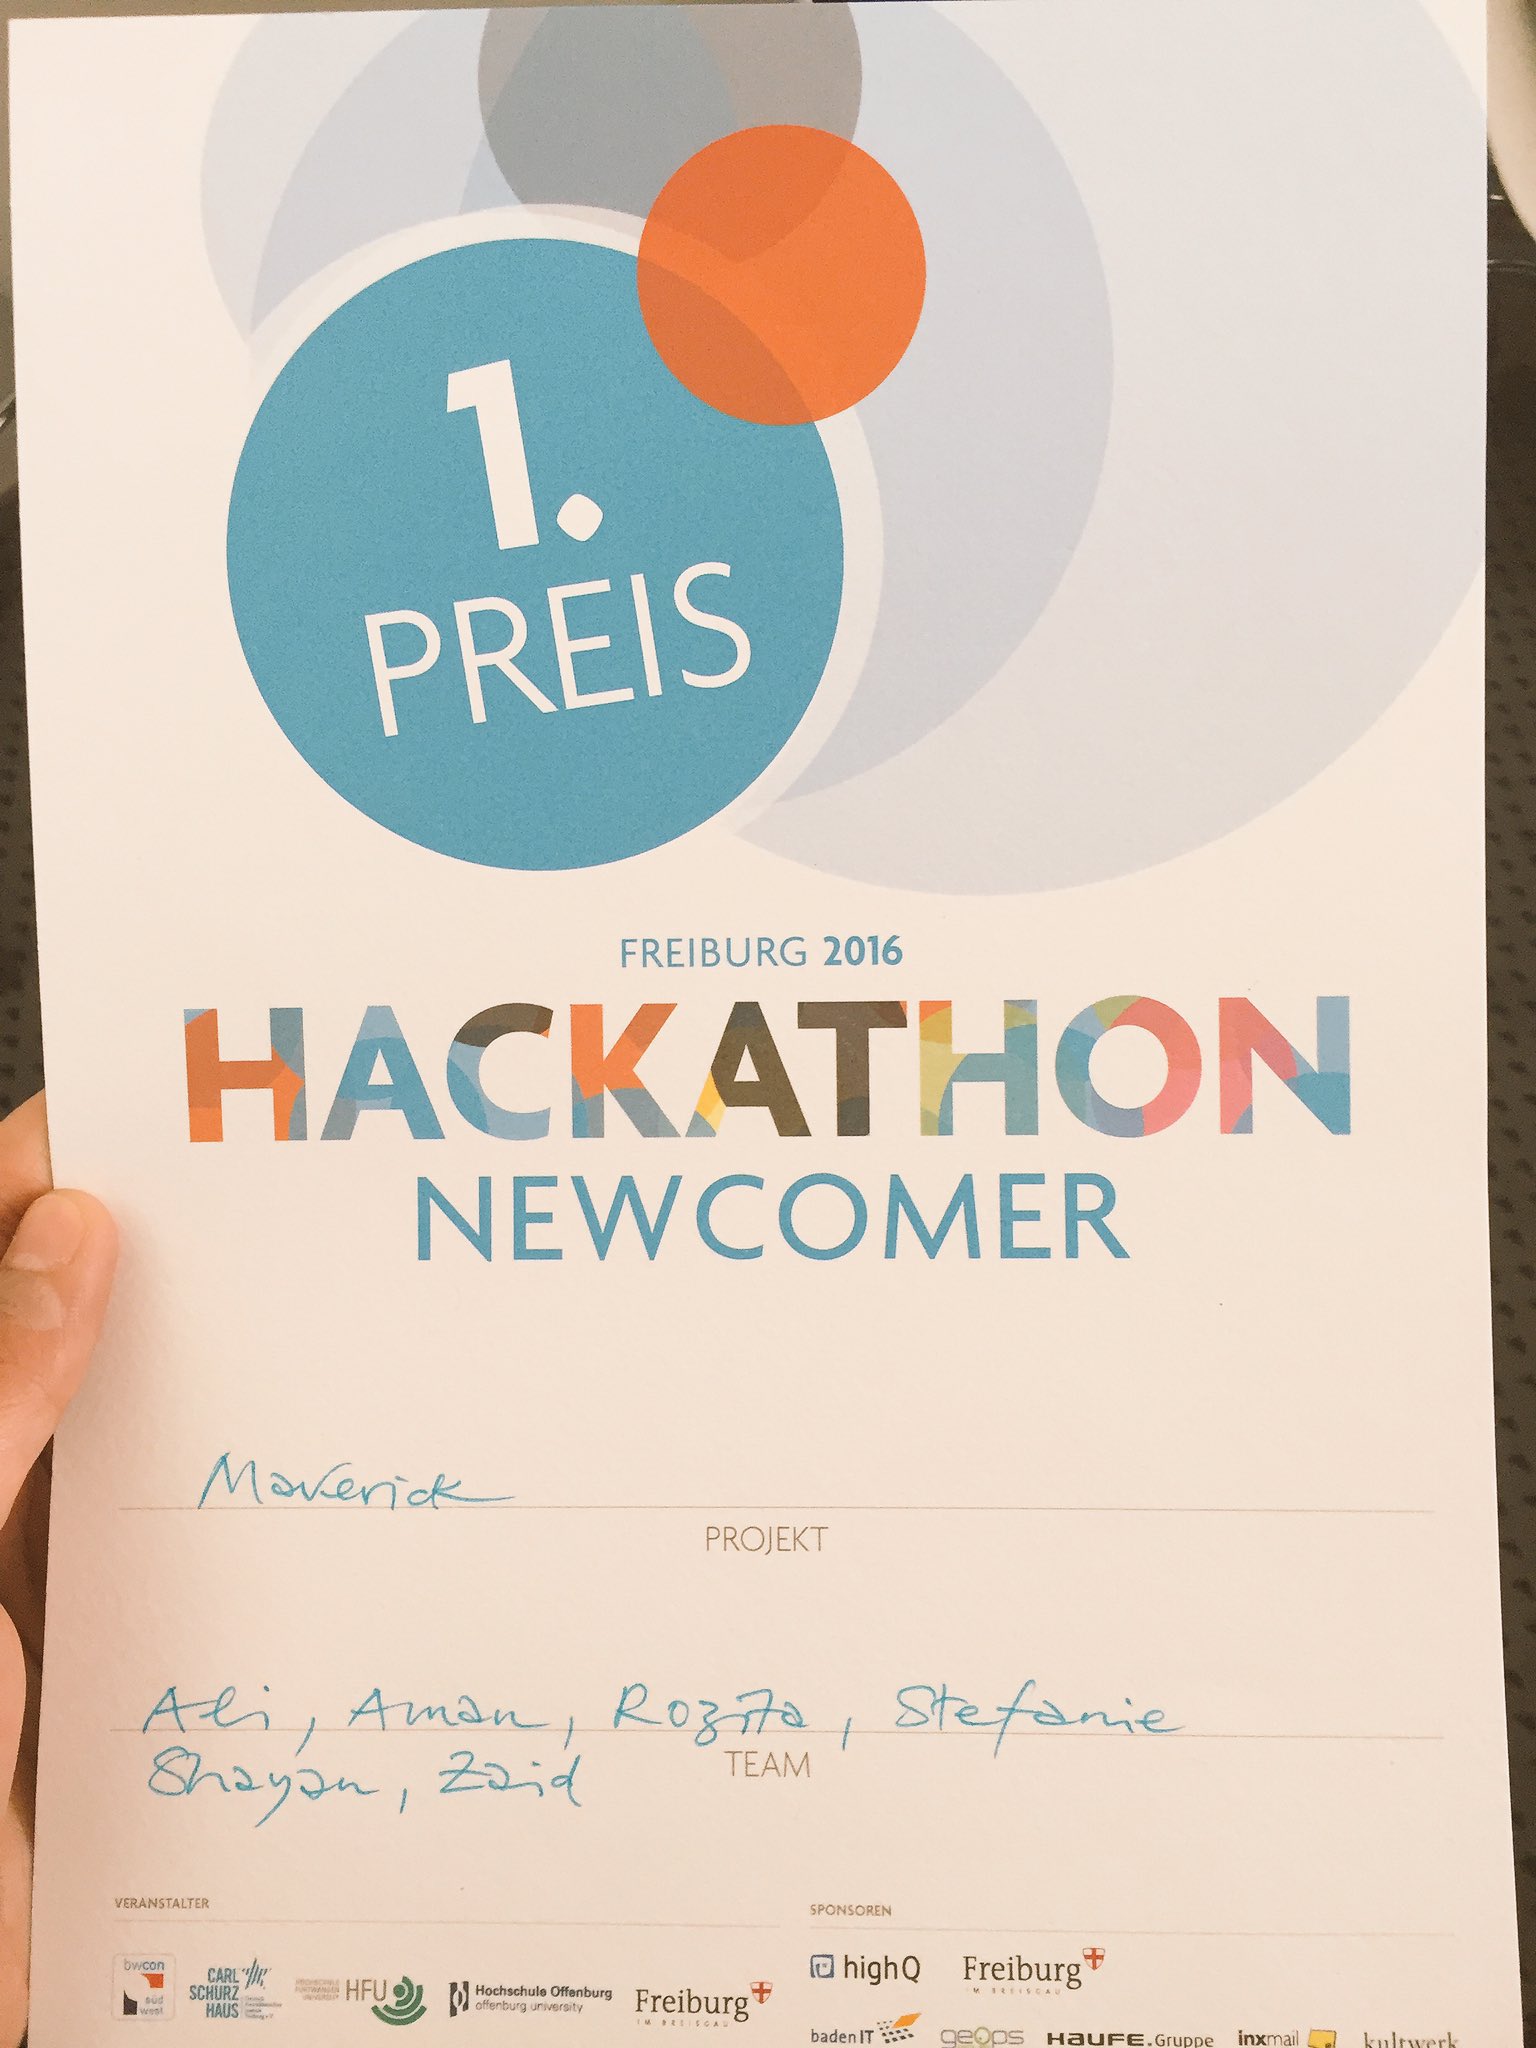 1.
PREIS
FREIBURG 2016
HACKATHON
NEWCOMER
Maverick
PROJEKT
Ali, Aman, Rozita, Stefanie
TEAM
Shayan, Zaid
VERANSTALTER
bwcon
süd
west
CARL
SCHURZ
HAUS
HOCHSCHULE
FURTWANGEN
UNIVERSITY
HFU
Hochschule Offenburg
offenburg university
Freiburg
IM BREISGAU
SPONSOREN
highQ
Freiburg
IM BREISGAU
badenIT
geOps
HAUFE.Gruppe
inxmail
kultwerk